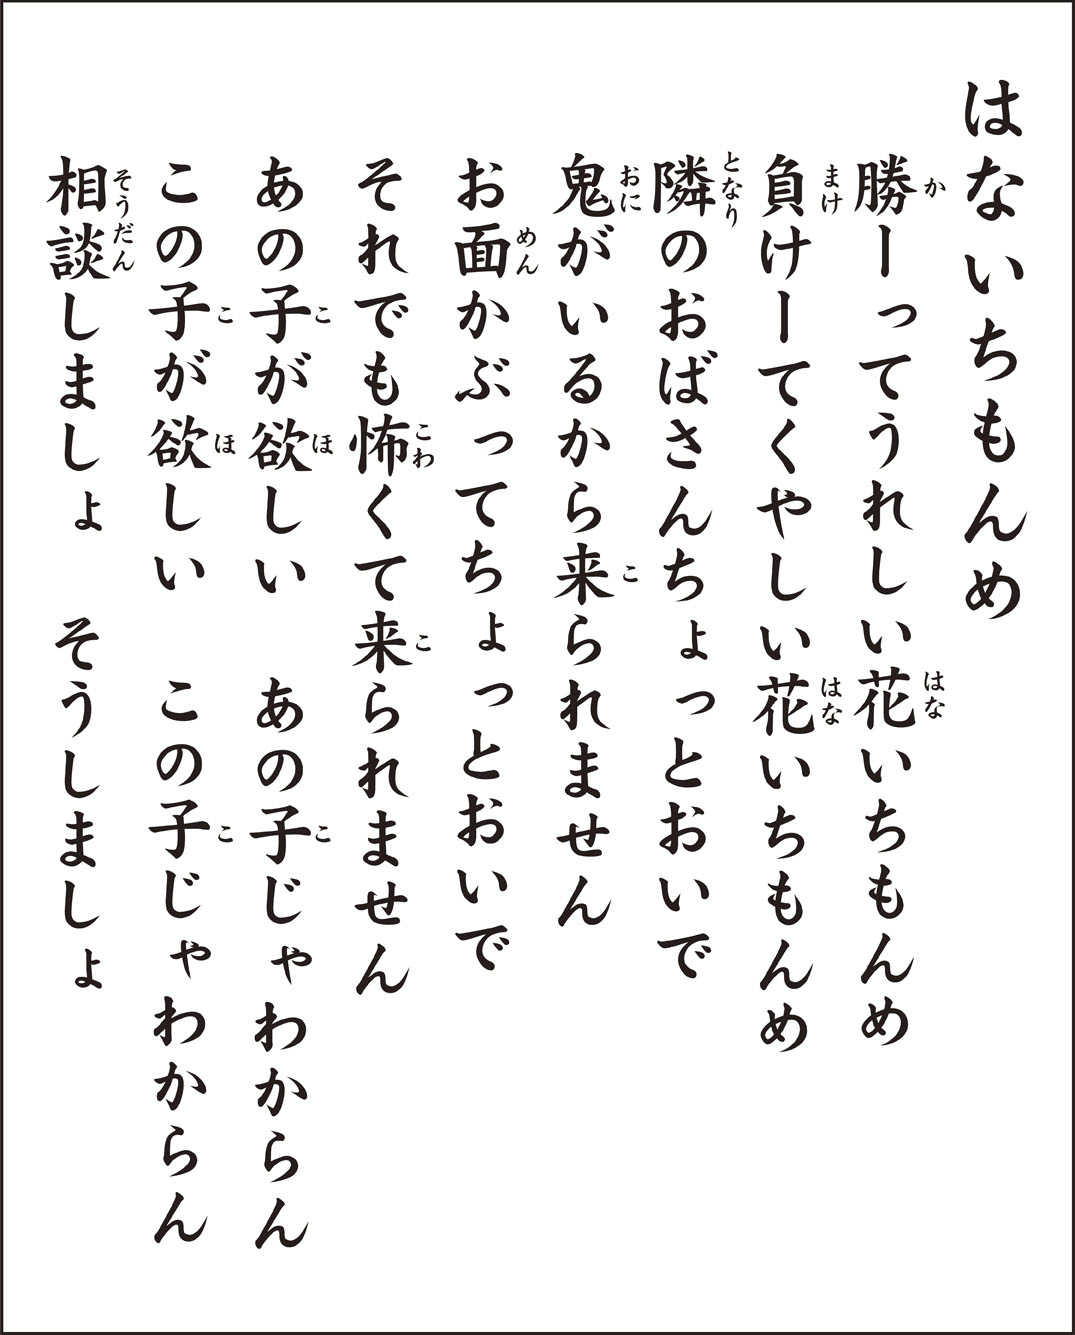 はないちもんめ
勝ーってうれしい花いちもんめ
負けーてくやしい花いちもんめ
隣のおばさんちょっとおいで
鬼がいるから来られません
お面かぶってちょっとおいで
それでも怖くて来られません
あの子が欲しい　あの子じゃわからん
この子が欲しい　この子じゃわからん
相談しましょ　そうしましょ